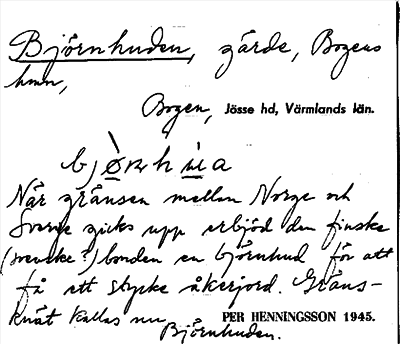 Björnhuden, gärde, Bogens
hmn,
Bogen, Jösse hd, Värmlands län.
När gränsen mellan Norge och
Sverge gicks upp erbjöd den finske
(svenske?) bonden en björnhud för att
få ett stycke åkerjord. Gräns-
knät kallas nu PER HENNINGSSON 1945.
Björnhuden.